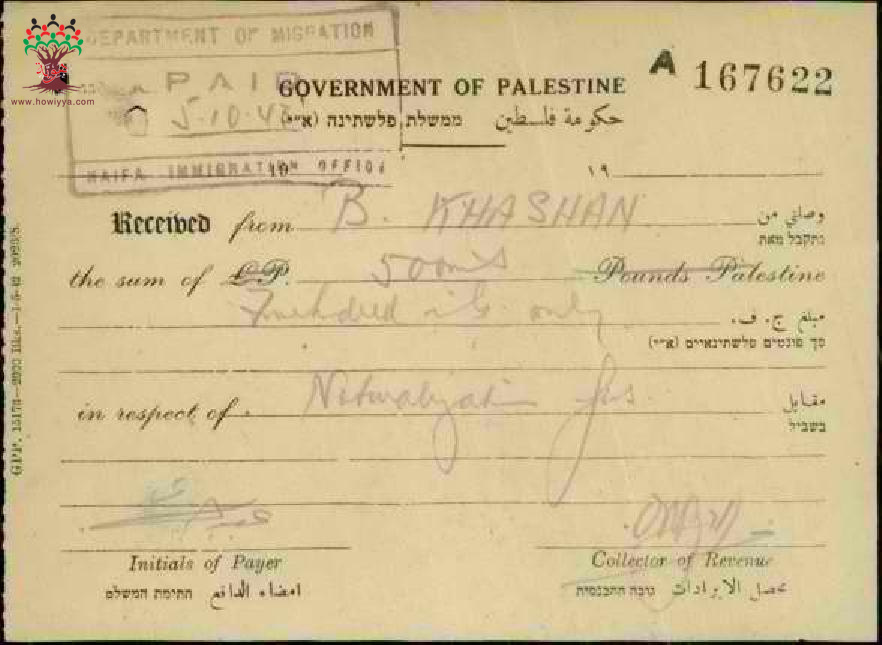 DEPARTMENT OF MIGRATION
PAID
5-10-42
HAIFA IMMIGRATION OFFICE
www.howiyya.com
GOVERNMENT OF PALESTINE
A 167622
ממשלת פלשתינה (א״י) حكومة فلسطين
19 ١٩
Received from B. KHASHAN وصلني من
נתקבל מאת
the sum of £P. 500 mils Pounds Palestine
only مبلغ ج. ف.
סך פונטים פלשתינאיים (א״י)
in respect of Naturalization fees مقابل
בשביל
Initials of Payer Collector of Revenue
חתימת המשלם امضاء الدافع גובה ההכנסות محصل الايرادات